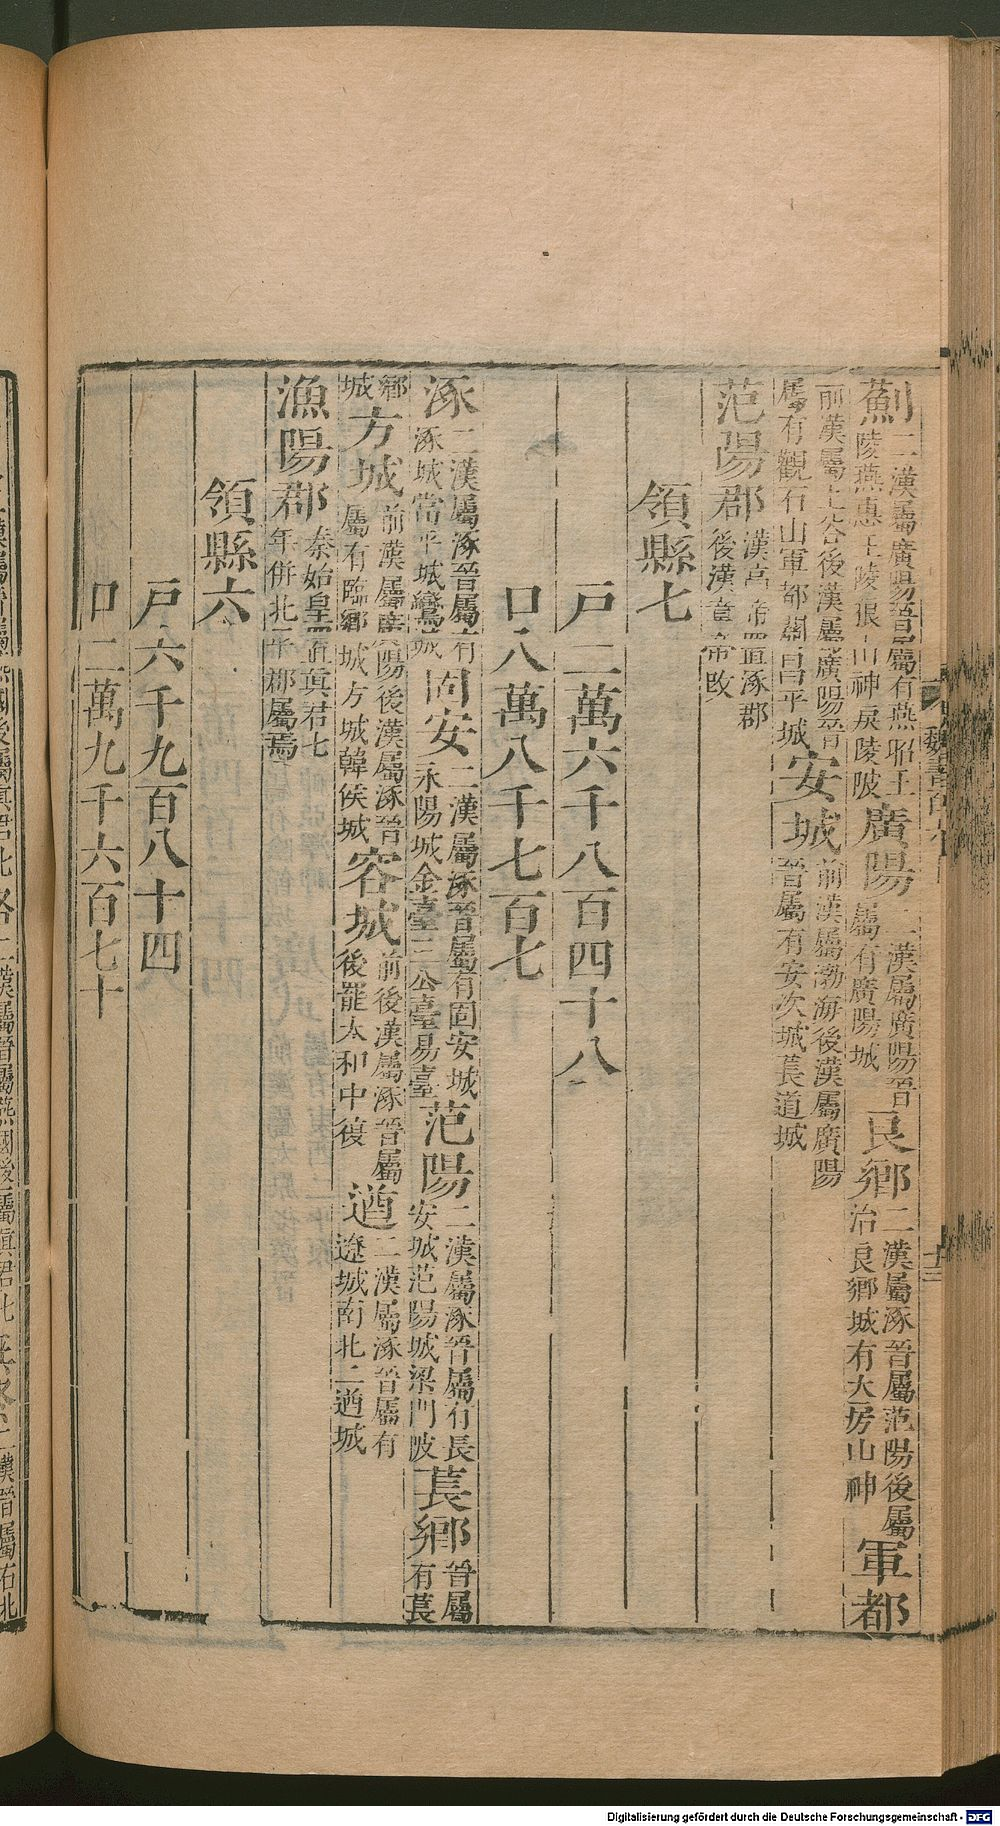 薊二漢屬廣陽晉屬有燕昭王陵燕惠王陵狼山神戾陵陂廣陽二漢屬廣陽晉屬有廣陽城良鄉二漢屬涿晉屬范陽後屬治良鄉城有大房山神軍都
前漢屬上谷後漢屬廣陽晉屬有觀石山軍都關昌平城安城前漢屬渤海後漢屬廣陽晉屬有安次城萇道城
范陽郡漢高帝置涿郡後漢章帝改
領縣七
戶二萬六千八百四十八
口八萬八千七百七
涿二漢屬涿晉屬有涿城當平城鸞城固安二漢屬涿晉屬有固安城永陽城金臺三公臺易臺范陽二漢屬涿晉屬有長安城范陽城梁門陂萇鄉晉屬有萇
鄉城方城前漢屬廣陽後漢屬涿晉屬有臨鄉城方城韓侯城容城前後漢屬涿晉屬後罷太和中復遒二漢屬涿晉屬有遼城南北二遒城
漁陽郡秦始皇置真君七年併北平郡屬焉
領縣六
戶六千九百八十四
口二萬九千六百七十
十三
Digitalisierung gefördert durch die Deutsche Forschungsgemeinschaft - DFG